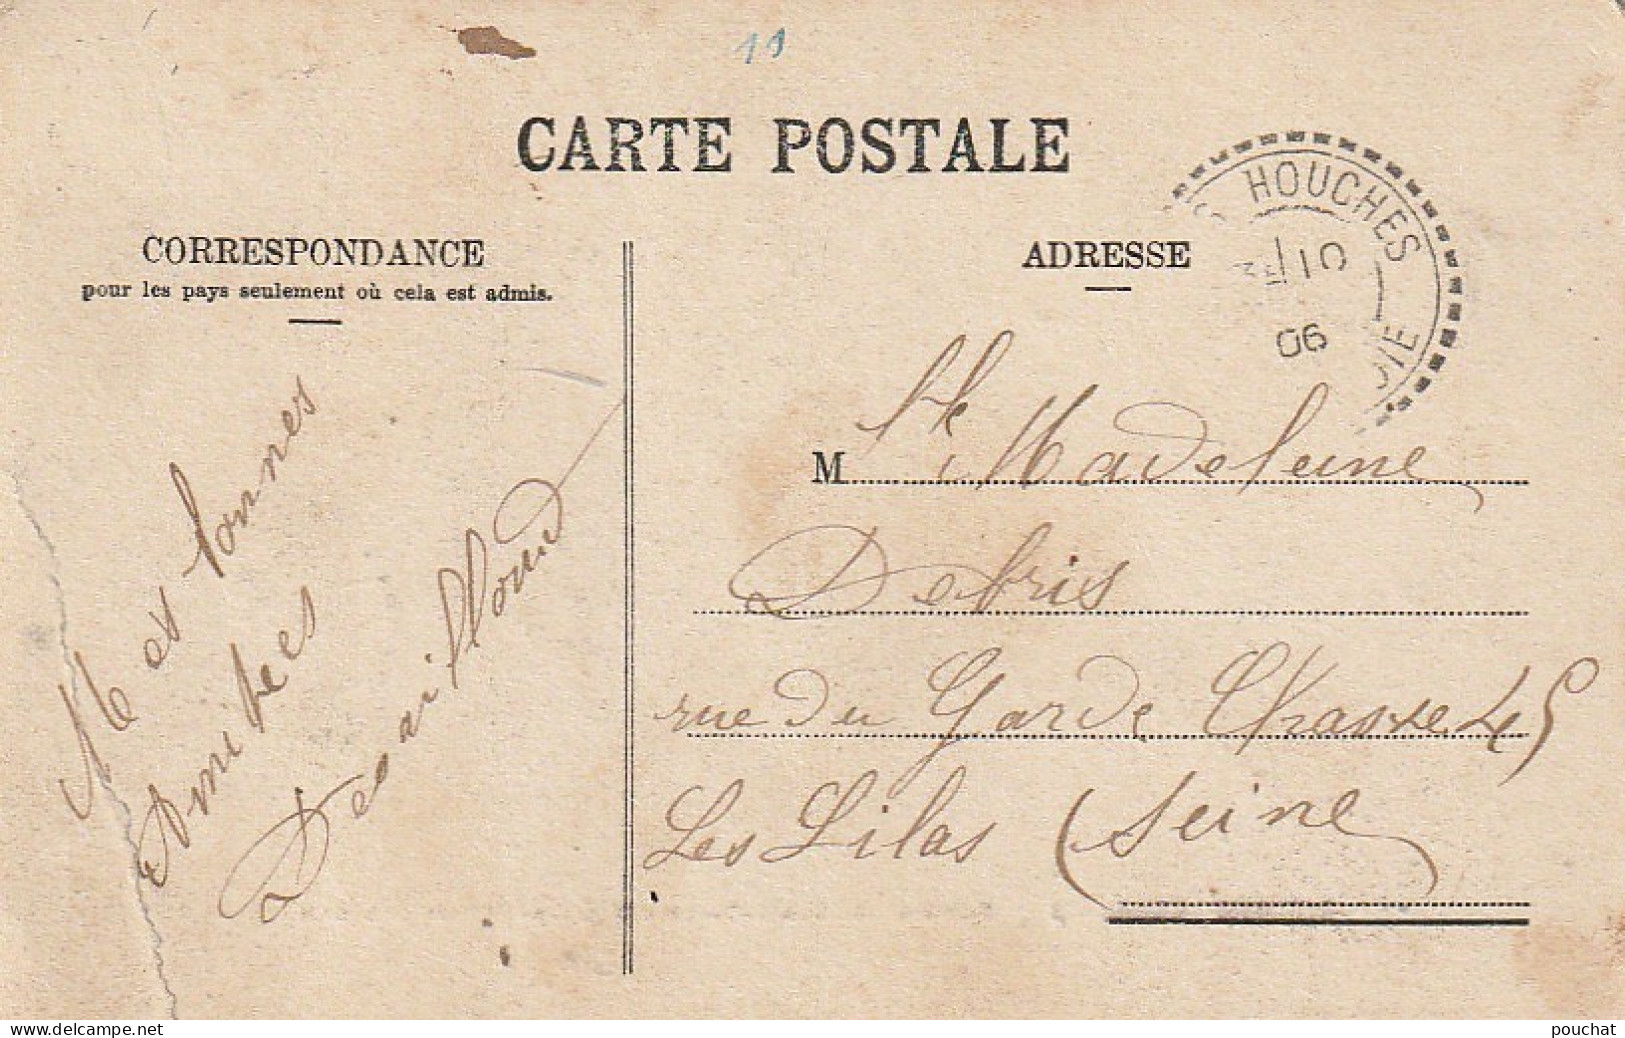 11
CARTE POSTALE
HOUCHES
10
06
VIE
CORRESPONDANCE
pour les pays seulement où cela est admis.
ADRESSE
Mes bonnes
Amitées
Desailloud
M lle Madeleine
Debris
rue du Garde Chasse 45
Les Lilas (Seine)
pouchat